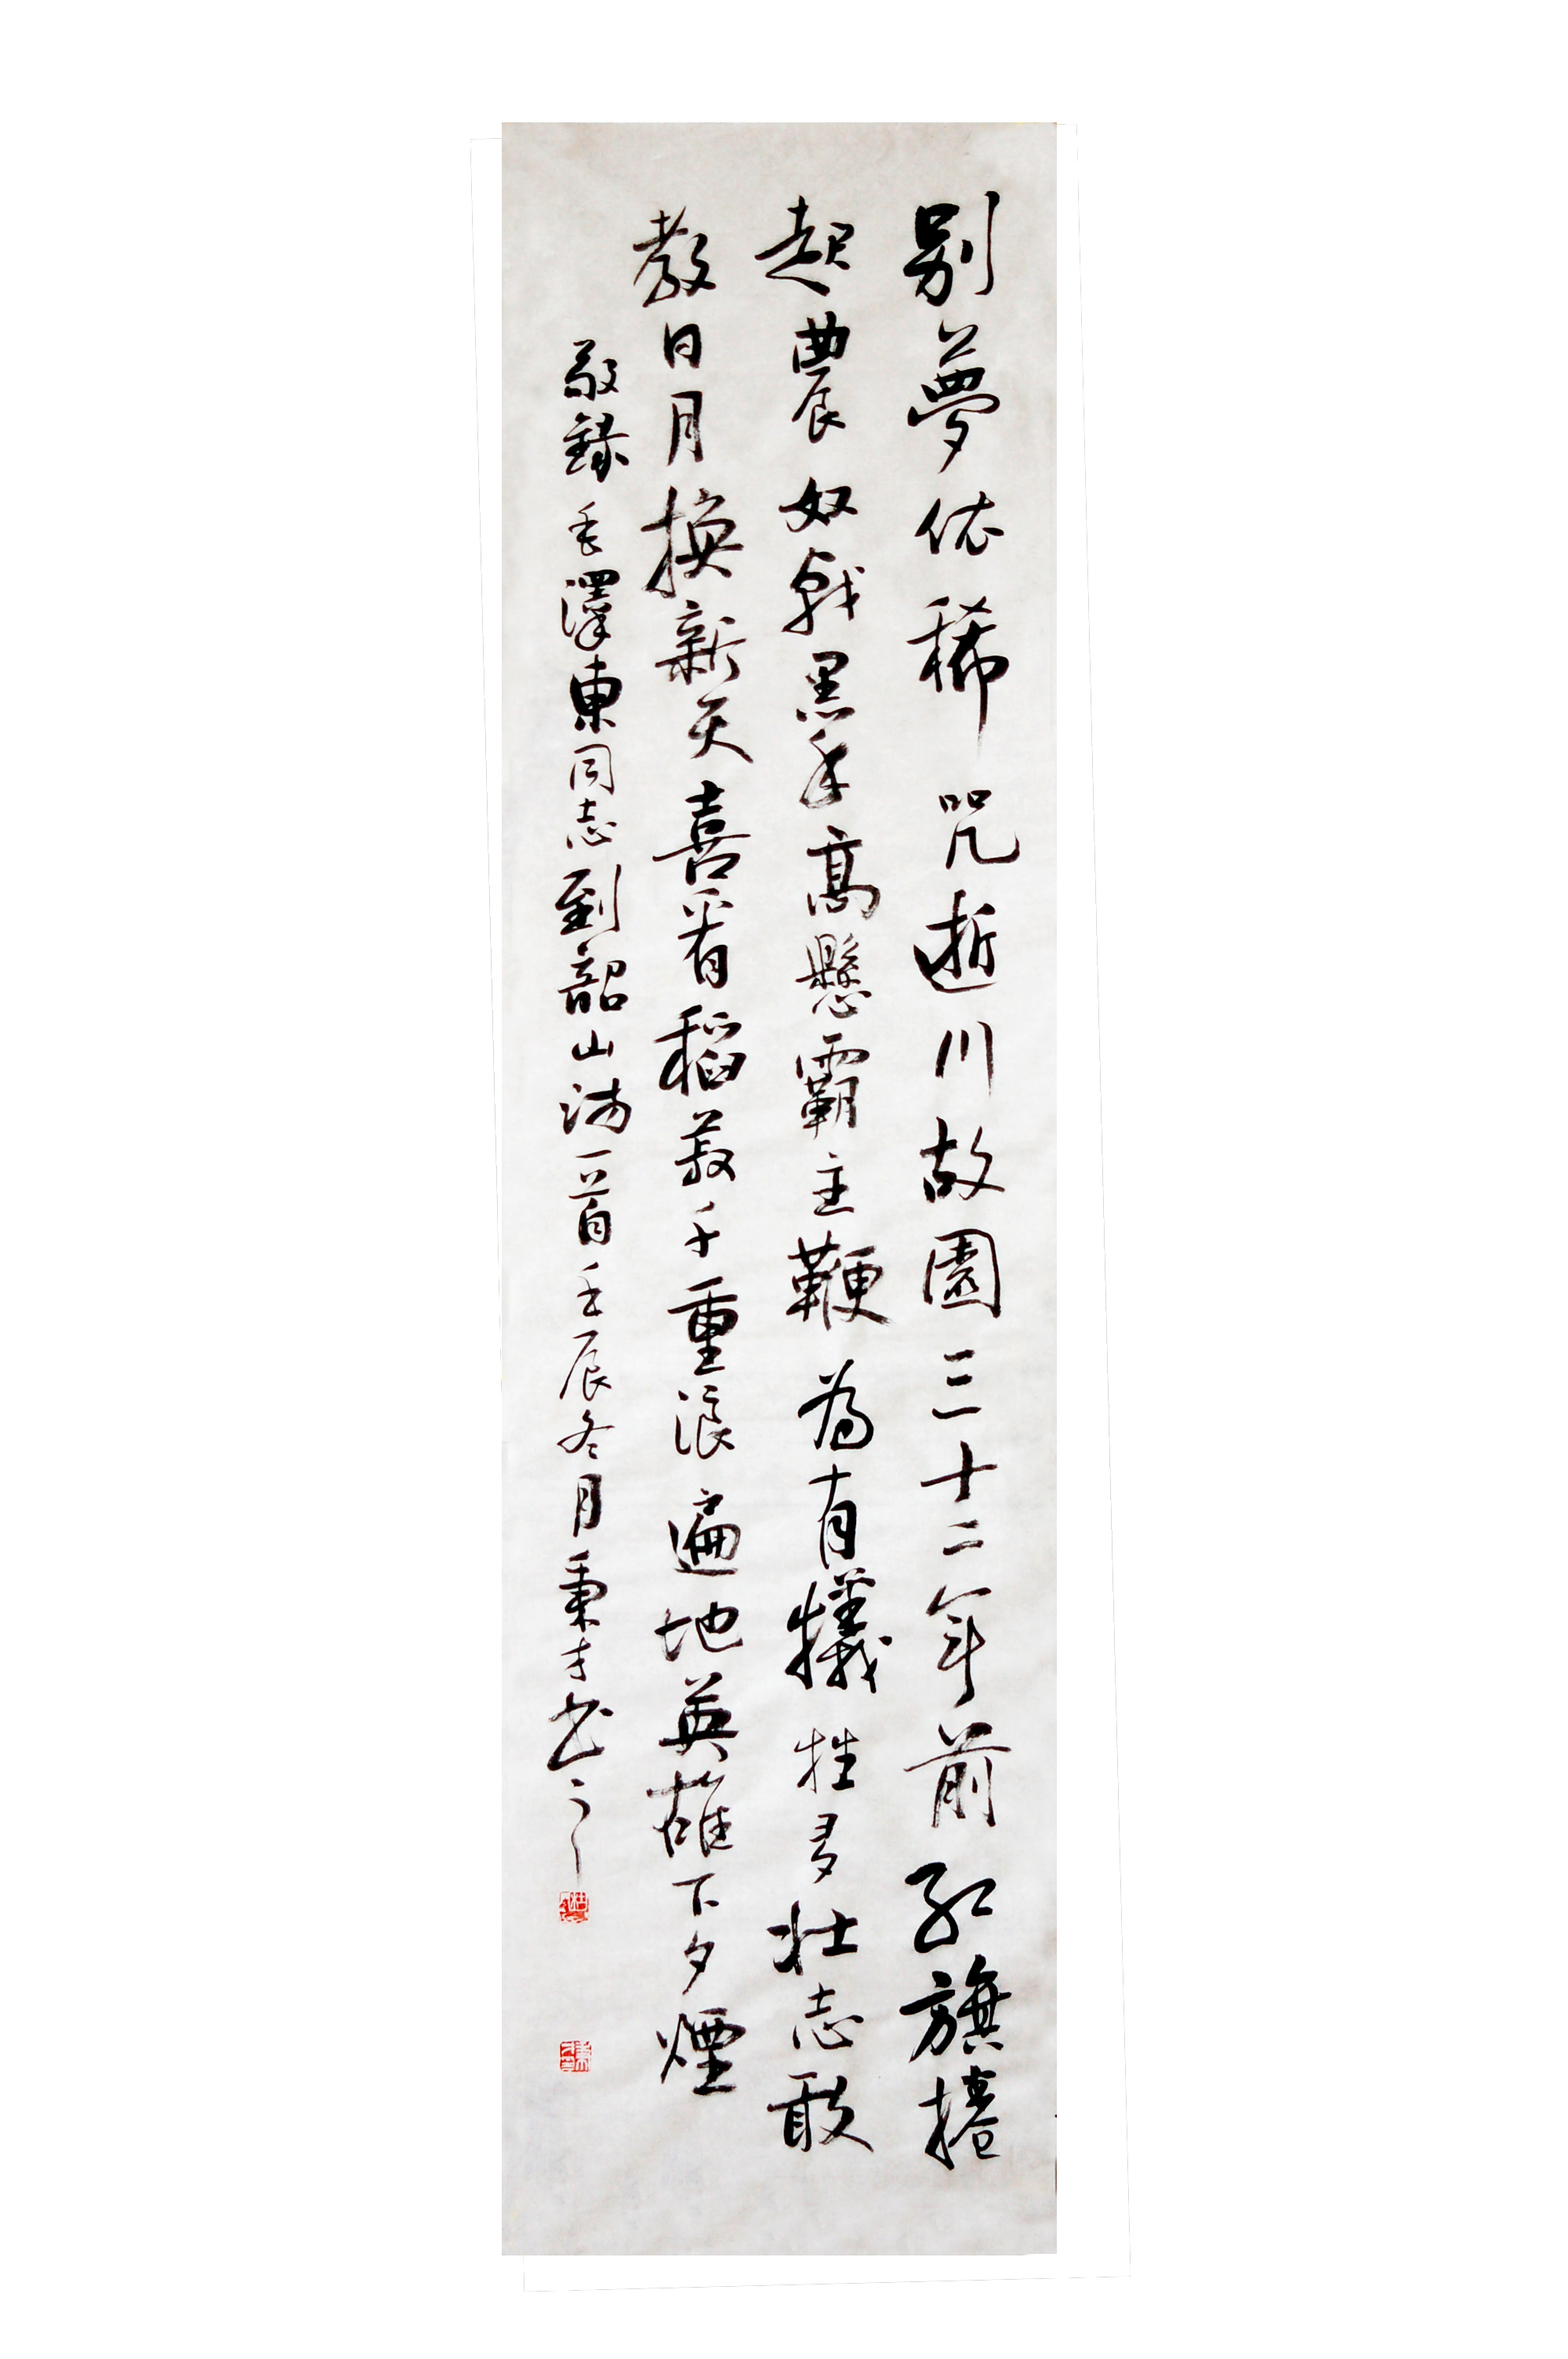 别夢依稀咒逝川故園三十二年前紅旗捲
起農奴戟黑手高懸霸主鞭為有犧牲多壯志敢
教日月換新天喜看稻菽千重浪遍地英雄下夕煙
敬錄毛澤東同志到韶山诗一首壬辰冬月秉才书之